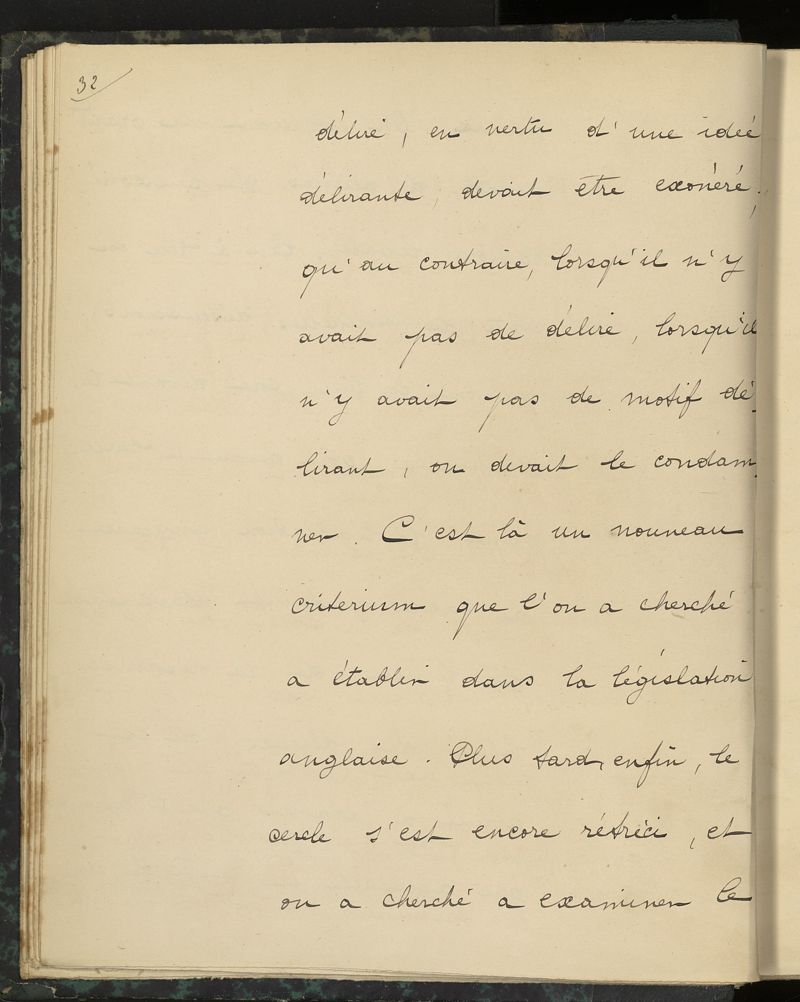 32
délire, en vertu d'une idée
délirante, devait etre exonéré;
qu'au contraire, lorsqu'il n'y
avait pas de délire, lorsqu'il
n'y avait pas de motif dé-
lirant, on devait le condam-
ner. C'est là un nouveau
criterium que l'on a cherché
a établir dans la législation
anglaise. Plus tard, enfin, le
cercle s'est encore rétréci, et
on a cherché a examiner le